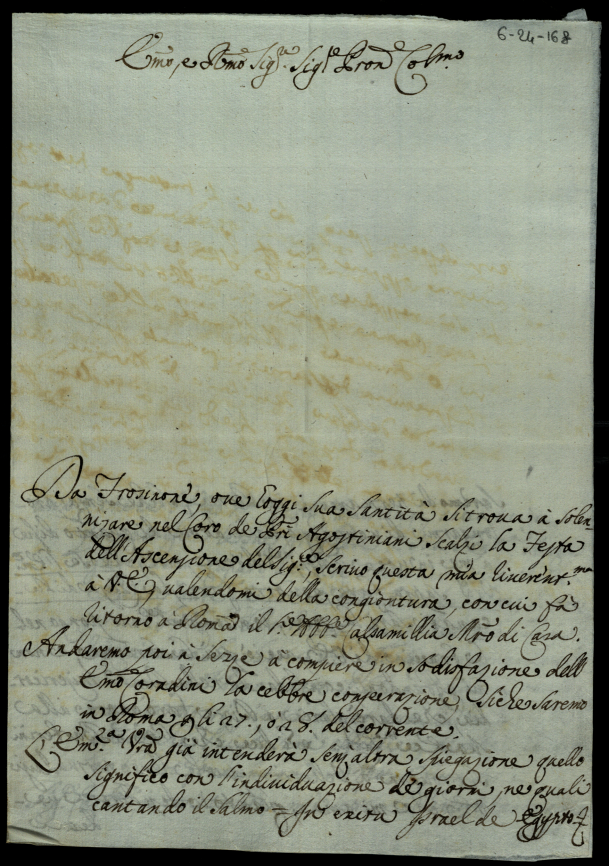 6-24-168
Emo, e Rmo Sigr. Sigre Pron Colmo.
Da Frosinone, ove hoggi Sua Santità si trova à solen-
nizare nel Coro de Pri Agostiniani Scalzi la Festa
dell'Ascenzione del Sigre, scrivo questa mia riverentma
à V. E, valendomi della congiontura, con cui fà
ritorno à Roma il Mro di Casa.
Andaremo poi à Sezze a compiere in sodisfazione dell
Emo Coradini la celbre consecrazione, siche saremo
in Roma li 27., o 28. del corrente.
L'Emza Vra già intenderà senz'altra spiegazione quello
significo con l'individuazione de giorni, ne quali
cantando il Salmo = In exitu Israel de Egypto =